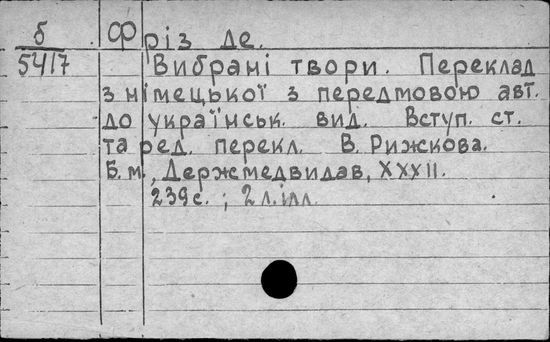 б
5417
Фріз де.
Вибрані твори. Переклад
з німецької з передмовою авт.
до українськ. вид. Вступ. ст.
та ред. перекл. В. Рижкова.
Б.м., Держмедвидав, XXXII.
239с. ; 2 л. ілл.